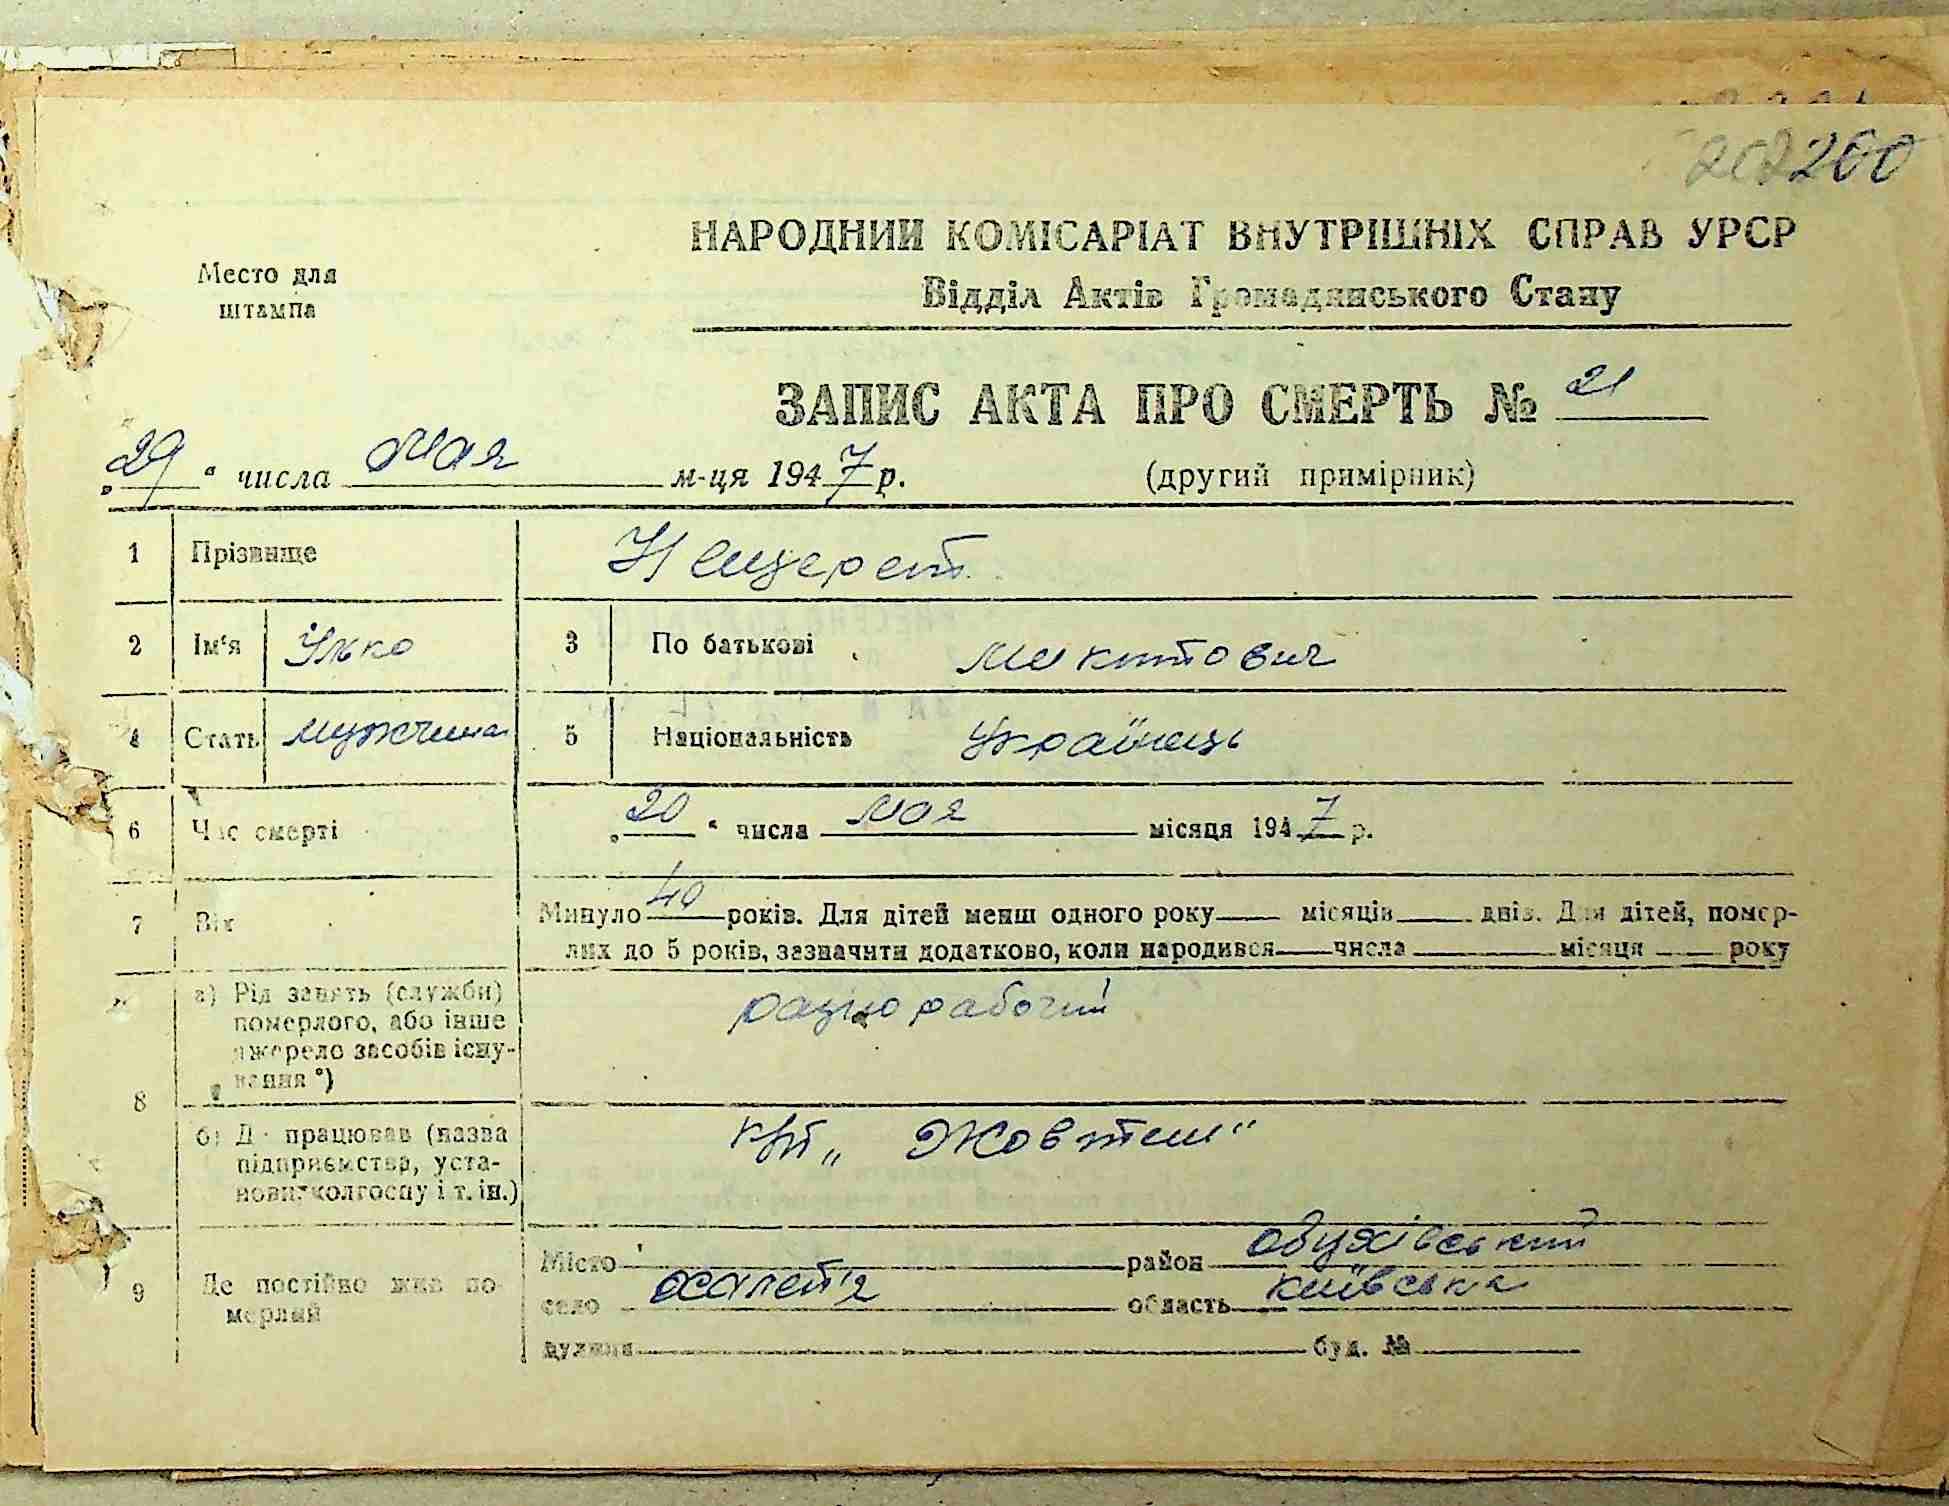 202 260
НАРОДНИЙ КОМІСАРІАТ ВНУТРІШНІХ СПРАВ УРСР
Відділ Актів Громадянського Стану
Место для
штампа
ЗАПИС АКТА ПРО СМЕРТЬ № 21
„29“ числа мая м-ця 1947 р. (другий примірник)
1 Прізвище Нещерет
2 Ім'я Ілько 3 По батькові Микитович
4 Стать мужчина 5 Національність Українець
6 Час смерті „20“ числа мая місяця 1947 р.
7 Вік Минуло 40 років. Для дітей менш одного року місяців днів. Для дітей, помер-
лих до 5 років, зазначити додатково, коли народився числа місяця року
8 а) Рід занять (службі)
померлого, або інше
джерело засобів існу-
вання*)
рабочий
б) Де працював (назва
підприємства, уста-
нови, колгоспу і т. ін.)
к/гт „Жовтень“
9 Де постійно жив по-
мерлий
Місто район Обухівський
село Халеп'я область Київська
вулиця буд. №